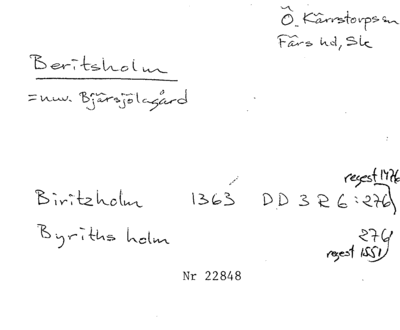 Ö. Kärrstorps sn
Färs hd, Sk
Beritsholm
= nuv. Bjärsjölagård
regest 1476
Biritzholm 1363 DD 3 R 6:276
Byriths holm 276
regest 1551
Nr 22848